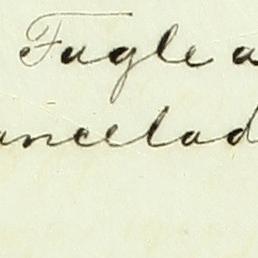 Fugle a
ancellad